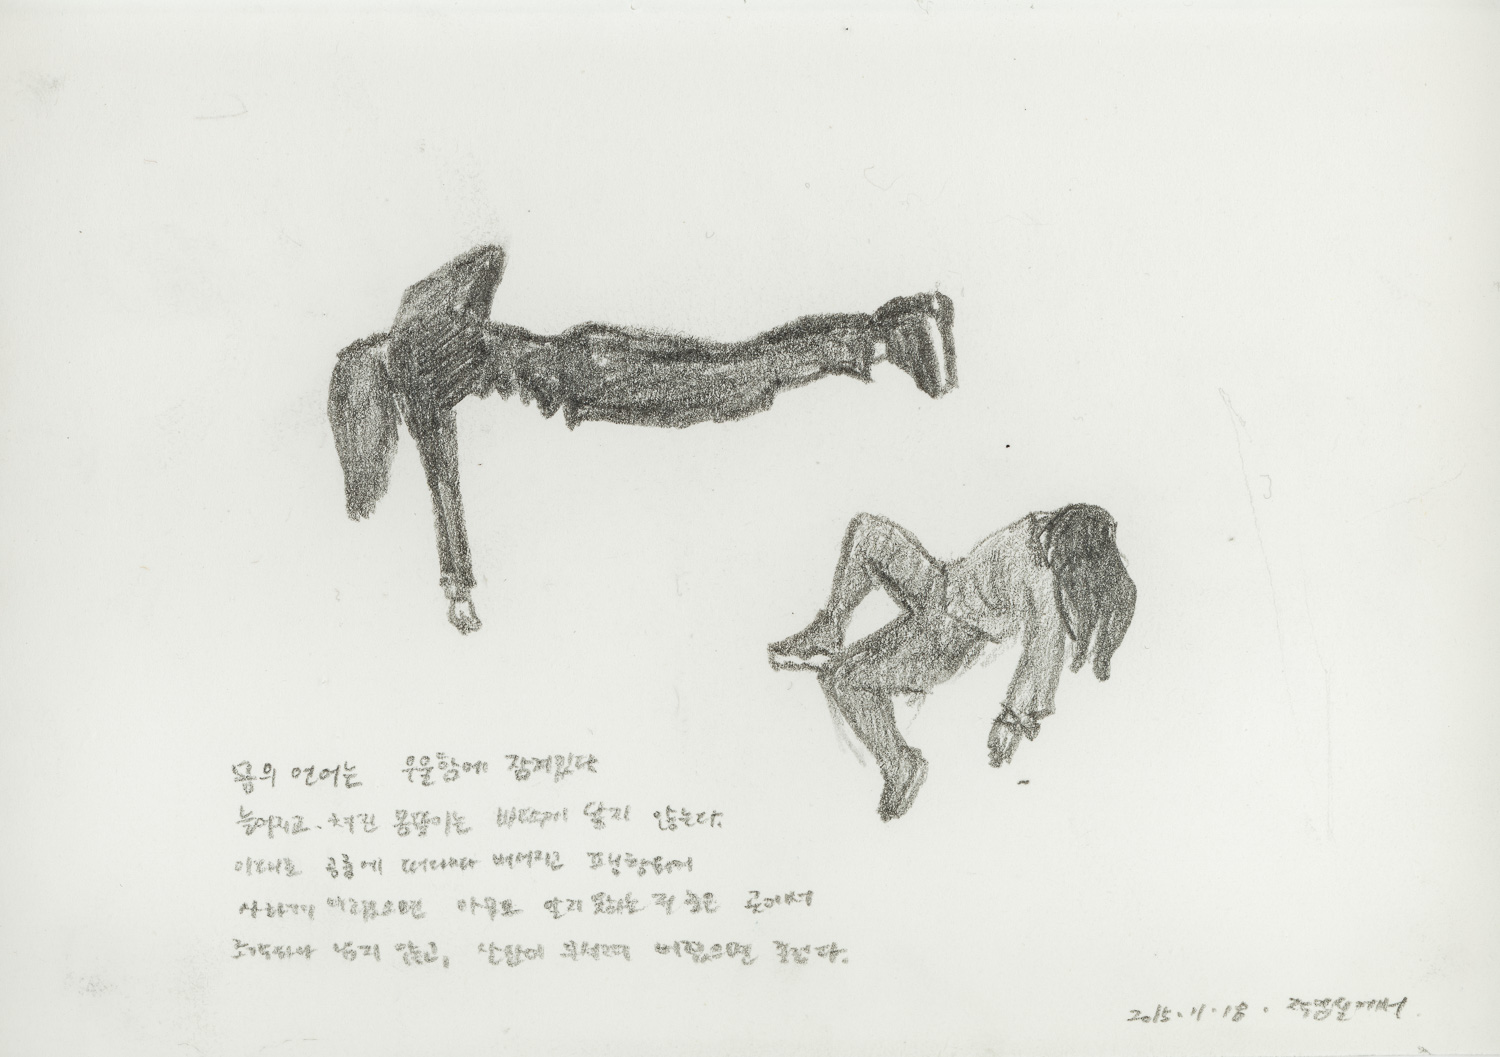 몸의 언어는 우울함에 잠겨있다
늘어지고 처진 몸뚱이는 바닥에 닿지 않는다.
이대로 공중에 떠다니다
사라져 버렸으면 아무도 알지 못하는 저 높은 곳에서
조각하나 남지 않고, 산산이 부서져 버렸으면 좋겠다.
2015.11.18. 작업실에서